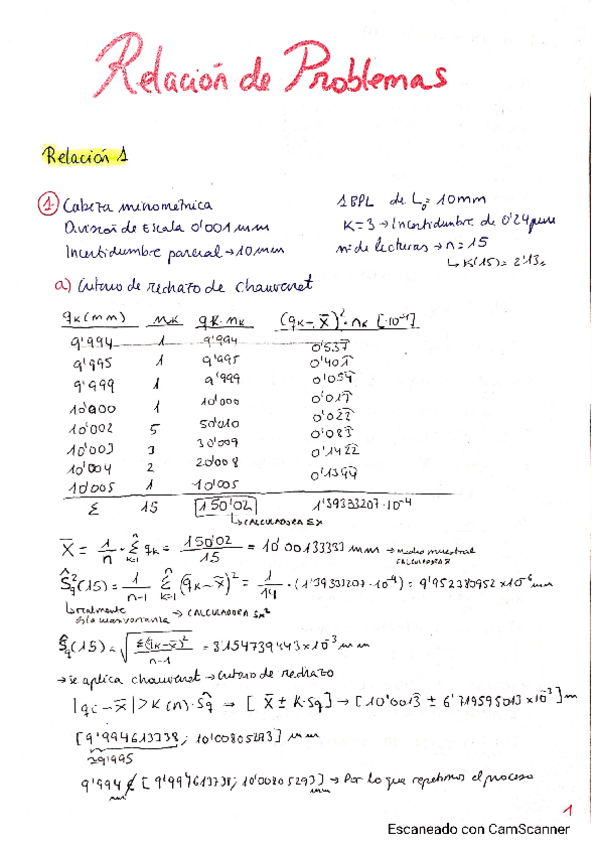 Relación de Problemas
Relación 1
1. Cabeza micrométrica
División de Escala 0'001 mm
Incertidumbre parcial → 10 mm
1 BPL de L₀ = 10mm
K=3 → Incertidumbre de 0'24
nº de lecturas → n = 15
↳ K(15) = 2'13
a) Criterio de rechazo de Chauvenet
qk (mm) nk qk·nk (qk - x̄)²·nk
9'994 1 9'994 0'537
9'995 1 9'995 0'401
9'999 1 9'999 0'054
10'000 1 10'000 0'017
10'002 5 50'010 0'022
10'003 3 30'009 0'083
10'004 2 20'008 0'1422
10'005 1 10'005 0'1344
Σ 15 150'02 1'39333207·10⁻⁴
↳ CALCULADORA Σx
X̄ = 1/n · Σ qk = 150'02/15 = 10'00133333 mm → media muestral
CALCULADORA x̄
Ŝq²(15) = 1/(n-1) Σ (qk - x̄)² = 1/14 · (1'39333207·10⁻⁴) = 9'952380952 x10⁻⁶ mm
↳ realmente es la cuasivarianza → CALCULADORA Sx²
Ŝq(15) = √(Σ(qk-x̄)²/(n-1)) = 3'154739443 x10⁻³ mm
→ se aplica chauvenet → criterio de rechazo
|qi - X̄| > K(n)·Ŝq ⇒ [X̄ ± K·Sq] → [10'0013 ± 6'719595013 x10⁻³] m
[9'994613738; 10'00805293] mm
9'994 ∉ [9'994613738; 10'00805293] → Por lo que repetimos el proceso
mm mm
1
Escaneado con CamScanner